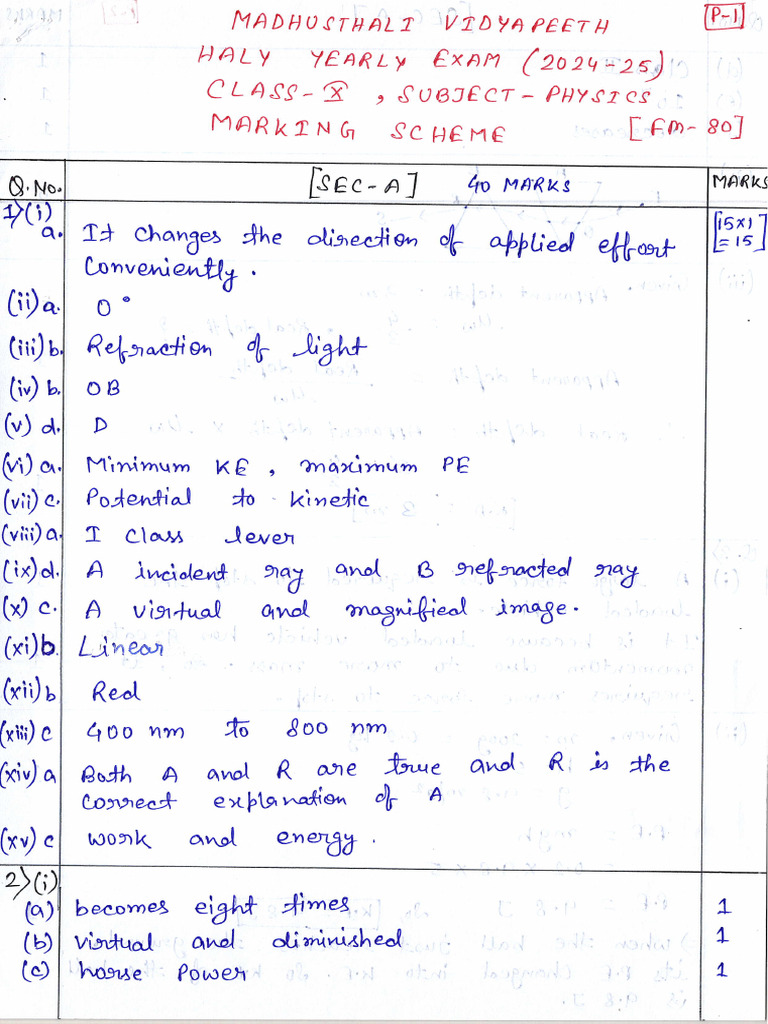 P-1
MADHUSTHALI VIDYAPEETH
HALY YEARLY EXAM (2024-25)
CLASS-X, SUBJECT-PHYSICS
MARKING SCHEME [FM-80]
Q.No. [SEC-A] 40 MARKS MARKS
1)(i) a. It changes the direction of applied effort [15x1
conveniently. =15]
(ii) a. 0°
(iii) b. Refraction of light
(iv) b. OB
(v) d. D
(vi) a. Minimum KE, maximum PE
(vii) c. Potential to kinetic
(viii) a. I class lever
(ix) d. A incident ray and B refracted ray
(x) c. A virtual and magnified image.
(xi) b. Linear
(xii) b Red
(xiii) c 400 nm to 800 nm
(xiv) a Both A and R are true and R is the
correct explanation of A
(xv) c work and energy.
2)(i)
(a) becomes eight times 1
(b) virtual and diminished 1
(c) horse power 1